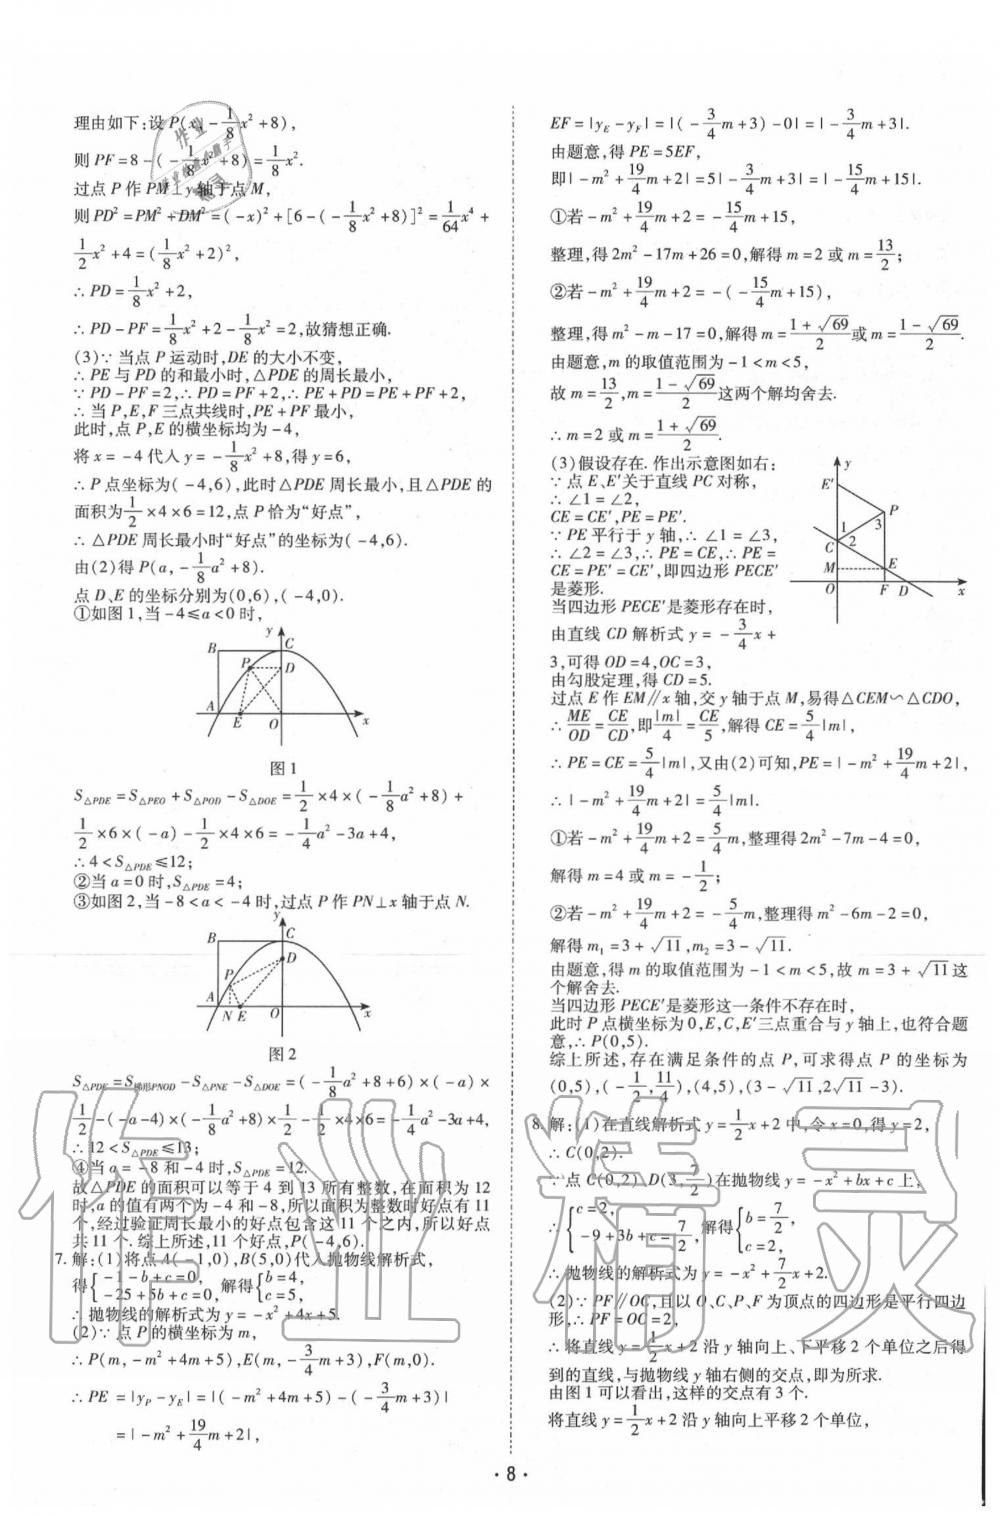 理由如下:设P(x,-1/8x²+8),
则PF=8-(-1/8x²+8)=1/8x².
过点P作PM⊥y轴于点M,
则PD²=PM²+DM²=(-x)²+[6-(-1/8x²+8)]²=1/64x⁴+
1/2x²+4=(1/8x²+2)²,
∴PD=1/8x²+2,
∴PD-PF=1/8x²+2-1/8x²=2,故猜想正确.
(3)∵当点P运动时,DE的大小不变,
∴PE与PD的和最小时,△PDE的周长最小,
∵PD-PF=2,∴PD=PF+2,∴PE+PD=PE+PF+2,
∴当P,E,F三点共线时,PE+PF最小,
此时,点P,E的横坐标均为-4,
将x=-4代入y=-1/8x²+8,得y=6,
∴P点坐标为(-4,6),此时△PDE周长最小,且△PDE的
面积为1/2×4×6=12,点P恰为“好点”,
∴△PDE周长最小时“好点”的坐标为(-4,6).
由(2)得P(a,-1/8a²+8).
点D、E的坐标分别为(0,6),(-4,0).
①如图1,当-4≤a<0时,
y
B C
P D
A E O x
图1
S△PDE=S△PEO+S△POD-S△DOE=1/2×4×(-1/8a²+8)+
1/2×6×(-a)-1/2×4×6=-1/4a²-3a+4,
∴4<S△PDE≤12;
②当a=0时,S△PDE=4;
③如图2,当-8<a<-4时,过点P作PN⊥x轴于点N.
y
B C
P D
A N E O x
图2
S△PDE=S梯形PNOD-S△PNE-S△DOE=(-1/8a²+8+6)×(-a)×
1/2-(-a-4)×(-1/8a²+8)×1/2-1/2×4×6=-1/4a²-3a+4,
∴12<S△PDE≤13;
④当a=-8和-4时,S△PDE=12.
故△PDE的面积可以等于4到13所有整数,在面积为12
时,a的值有两个为-4和-8,所以面积为整数时好点有11
个,经过验证周长最小的好点包含这11个之内,所以好点
共11个.综上所述,11个好点,P(-4,6).
7.解:(1)将点A(-1,0),B(5,0)代入抛物线解析式,
得{-1-b+c=0, -25+5b+c=0, 解得{b=4, c=5,
∴抛物线的解析式为y=-x²+4x+5.
(2)∵点P的横坐标为m,
∴P(m,-m²+4m+5),E(m,-3/4m+3),F(m,0).
∴PE=|yP-yE|=|(-m²+4m+5)-(-3/4m+3)|
=|-m²+19/4m+2|,
EF=|yE-yF|=|(-3/4m+3)-0|=|-3/4m+3|.
由题意,得PE=5EF,
即|-m²+19/4m+2|=5|-3/4m+3|=|-15/4m+15|.
①若-m²+19/4m+2=-15/4m+15,
整理,得2m²-17m+26=0,解得m=2或m=13/2;
②若-m²+19/4m+2=-(-15/4m+15),
整理,得m²-m-17=0,解得m=(1+√69)/2或m=(1-√69)/2.
由题意,m的取值范围为-1<m<5,
故m=13/2,m=(1-√69)/2这两个解均舍去.
∴m=2或m=(1+√69)/2.
(3)假设存在.作出示意图如右:
∵点E、E′关于直线PC对称,
∴∠1=∠2,
CE=CE′,PE=PE′.
∵PE平行于y轴,∴∠1=∠3,
∴∠2=∠3,∴PE=CE,∴PE=
CE=PE′=CE′,即四边形PECE′
是菱形.
当四边形PECE′是菱形存在时,
由直线CD解析式y=-3/4x+
y
E′
P
1 3
C 2
M E
O F D x
3,可得OD=4,OC=3,
由勾股定理,得CD=5.
过点E作EM∥x轴,交y轴于点M,易得△CEM∽△CDO,
∴ME/OD=CE/CD,即|m|/4=CE/5,解得CE=5/4|m|,
∴PE=CE=5/4|m|,又由(2)可知,PE=|-m²+19/4m+2|,
∴|-m²+19/4m+2|=5/4|m|.
①若-m²+19/4m+2=5/4m,整理得2m²-7m-4=0,
解得m=4或m=-1/2;
②若-m²+19/4m+2=-5/4m,整理得m²-6m-2=0,
解得m₁=3+√11,m₂=3-√11.
由题意,得m的取值范围为-1<m<5,故m=3+√11这
个解舍去.
当四边形PECE′是菱形这一条件不存在时,
此时P点横坐标为0,E,C,E′三点重合与y轴上,也符合题
意,∴P(0,5).
综上所述,存在满足条件的点P,可求得点P的坐标为
(0,5),(-1/2,11/4),(4,5),(3-√11,2√11-3).
8.解:(1)在直线解析式y=1/2x+2中,令x=0,得y=2,
∴C(0,2).
∵点C(0,2),D(3,7/2)在抛物线y=-x²+bx+c上,
∴{c=2, -9+3b+c=7/2, 解得{b=7/2, c=2,
∴抛物线的解析式为y=-x²+7/2x+2.
(2)∵PF∥OC,且以O、C、P、F为顶点的四边形是平行四边
形,∴PF=OC=2,
∴将直线y=1/2x+2沿y轴向上、下平移2个单位之后得
到的直线,与抛物线y轴右侧的交点,即为所求.
由图1可以看出,这样的交点有3个.
将直线y=1/2x+2沿y轴向上平移2个单位,
·8·
作业精灵